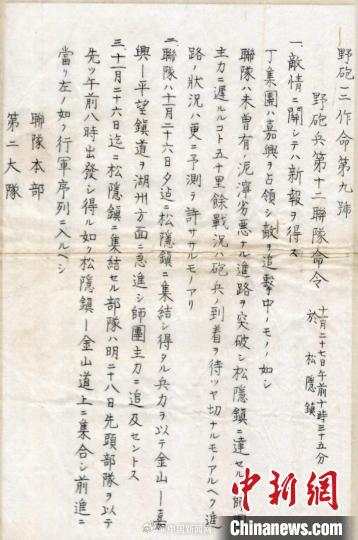 野砲一二作命第九號
野砲兵第十二聯隊命令
十一月二十七日午前十時三十五分
於松隱鎮
一、敵情ニ關シテハ新報ヲ得ス
丁集團ハ嘉興ヲ占領シ敵ヲ追撃中ノモノノ如シ
聯隊ハ未曽有ノ泥濘劣悪ナル進路ヲ突破シ松隱鎮ニ達セル師團
主力ニ遲ルルコト五十里餘戦況ハ砲兵ノ到着ヲ待ツヤ切ナルモノアルヘク進
路ノ狀況ハ更ニ予測ヲ許ササルモノアリ
二、聯隊ハ十一月二十六日夕迄ニ松隱鎮ニ集結シ得タル兵力ヲ以テ金山ー嘉
興ー平望鎮道ヲ湖州方面ニ急進シ師團主力ニ追及セントス
三、十一月二十六日迄ニ松隱鎮ニ集結セル部隊ハ明二十八日先頭部隊ヲ以テ
先ツ午前八時出發シ得ル如ク松隱鎮ー金山道上ニ集合シ前進ニ
當リ左ノ如ク行軍序列ニ入ルヘシ
聯隊本部
第二大隊
中新网
Chinanews.com
@中国新闻网